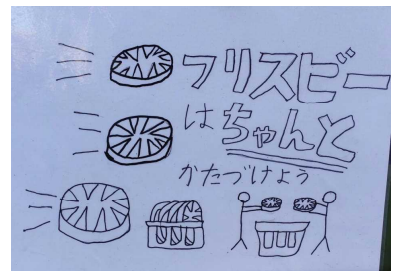 フリスビー
はちゃんと
かたづけよう